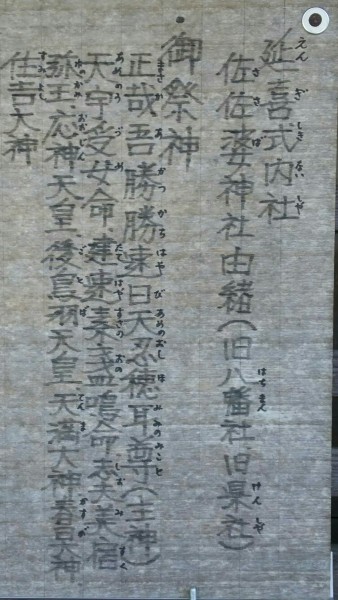 延喜式内社
佐佐婆神社由緒(旧八幡社旧県社)
御祭神
正哉吾勝勝速日天忍穂耳尊(主神)
天宇受女命、建速素戔嗚命、志夫美宿
祢王、応神天皇、後鳥羽天皇、天満大神春日大神
住吉大神